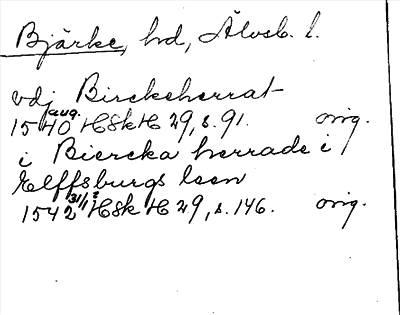 Bjärke, hd, Älvsb. l.
vdj Birckeherrat
1540 aug. HSkH 29, s. 91. orig.
i Biercka herrade i
Elffsburgs leen
1542 31/1 ? HSk H 29, s. 146. orig.